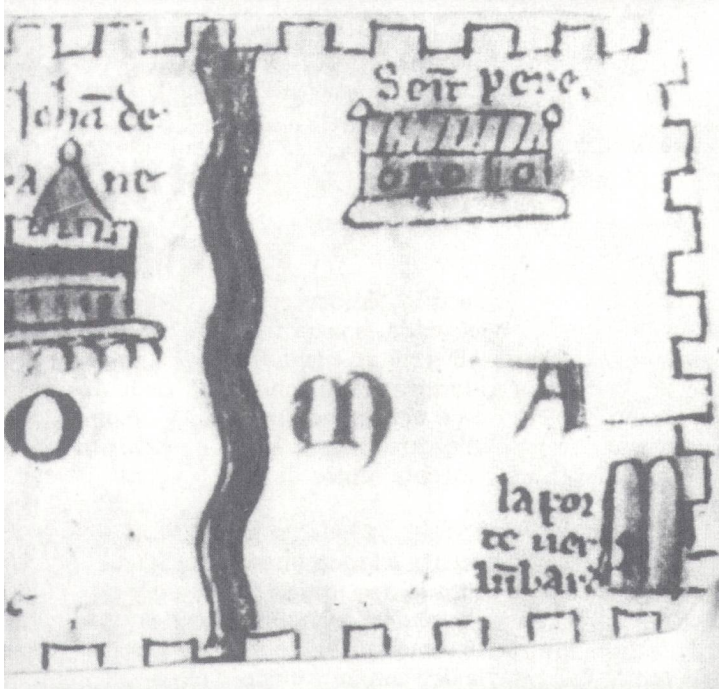 Joha̅ de
a ne
Sei̅t pere.
O M A
la por
te uer
lu̅bard
e